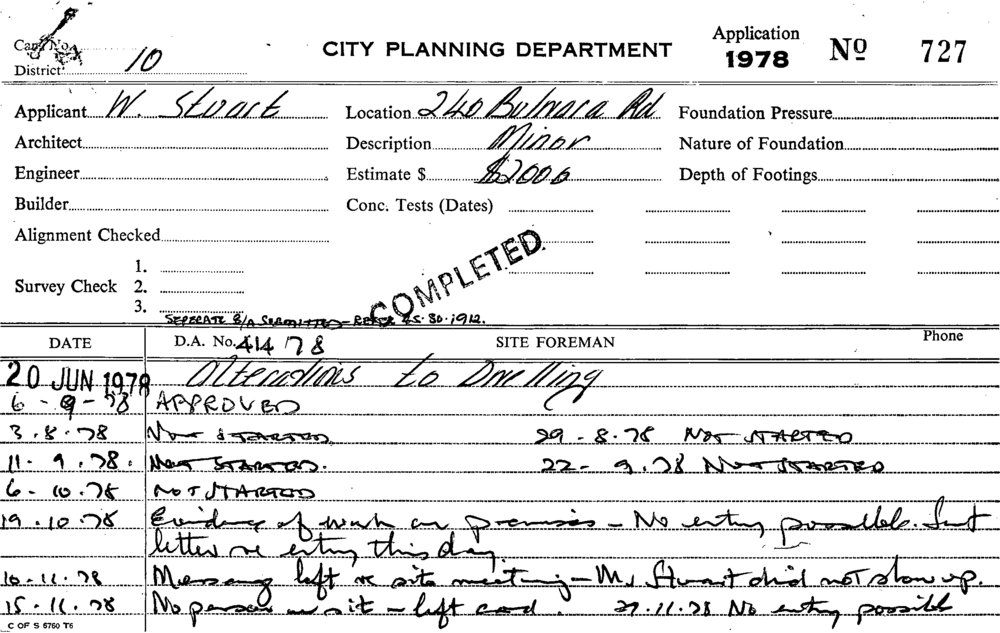 Card No.
District 10
CITY PLANNING DEPARTMENT
Application
1978 No 727
Applicant W. Stuart Location 240 Bulwara Rd Foundation Pressure
Architect Description Minor Nature of Foundation
Engineer Estimate $ $2000 Depth of Footings
Builder Conc. Tests (Dates)
Alignment Checked
COMPLETED
1.
Survey Check 2.
3.
SEPERATE B/A SUBMITTED - REFER 45.80.1912.
DATE D.A. No. 414/78 SITE FOREMAN Phone
20 JUN 1978 Alterations to Dwelling
6 - 9 - 78 APPROVED
3.8.78 NOT STARTED 29-8.78 NOT STARTED
11-9.78. NOT STARTED. 22-9.78 NOT STARTED
6-10.78 NOT STARTED
19.10.78 Evidence of work on premises - No entry possible. Sent
letter re entry this day
10-11.78 Message left re site meeting - Mr Stuart did not show up.
15-11.78 No person on site - left card. 27.11.78 No entry possible
C OF S 6760 T6